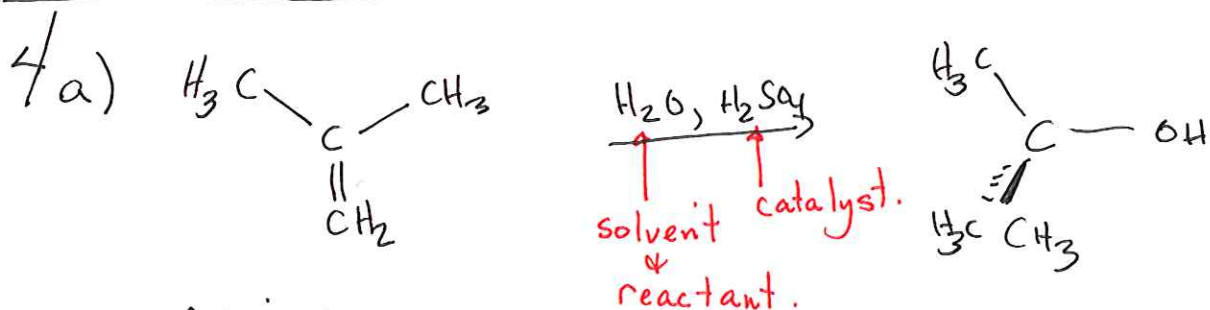 4a)
H₃C CH₃
C
CH₂
H₂O, H₂SO₄
solvent
&
reactant.
catalyst.
H₃C
C OH
H₃C CH₃